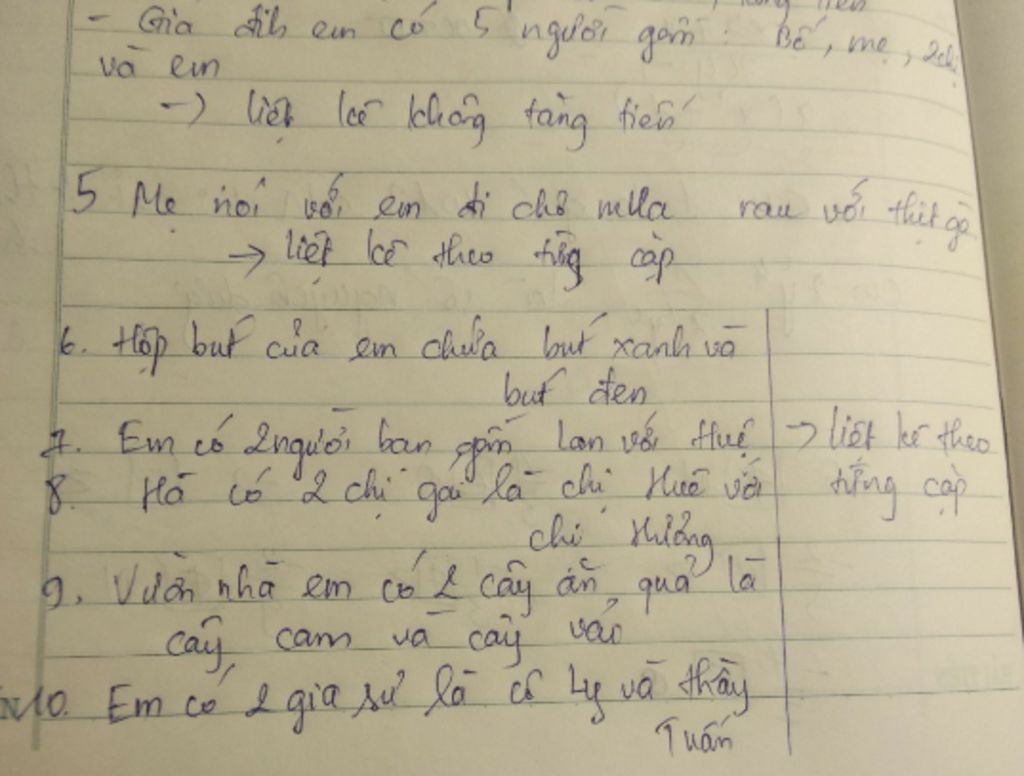 - Gia đih em có 5 người gồm : Bố, mẹ, 2chị
và em
-> liệt kê không tăng tiến
5 Mẹ nói với em đi chợ mua rau với thịt gà
-> liệt kê theo từng cặp
6. Hộp bút của em chứa bút xanh và
bút đen
7. Em có 2 người bạn gồm Lan với Huệ -> liệt kê theo
8. Hà có 2 chị gái là chị Huê với từng cặp
chị Hưởng
9. Vườn nhà em có 2 cây ăn quả là
cây cam và cây
10. Em có 2 gia sư là cô Ly và thầy
Tuấn